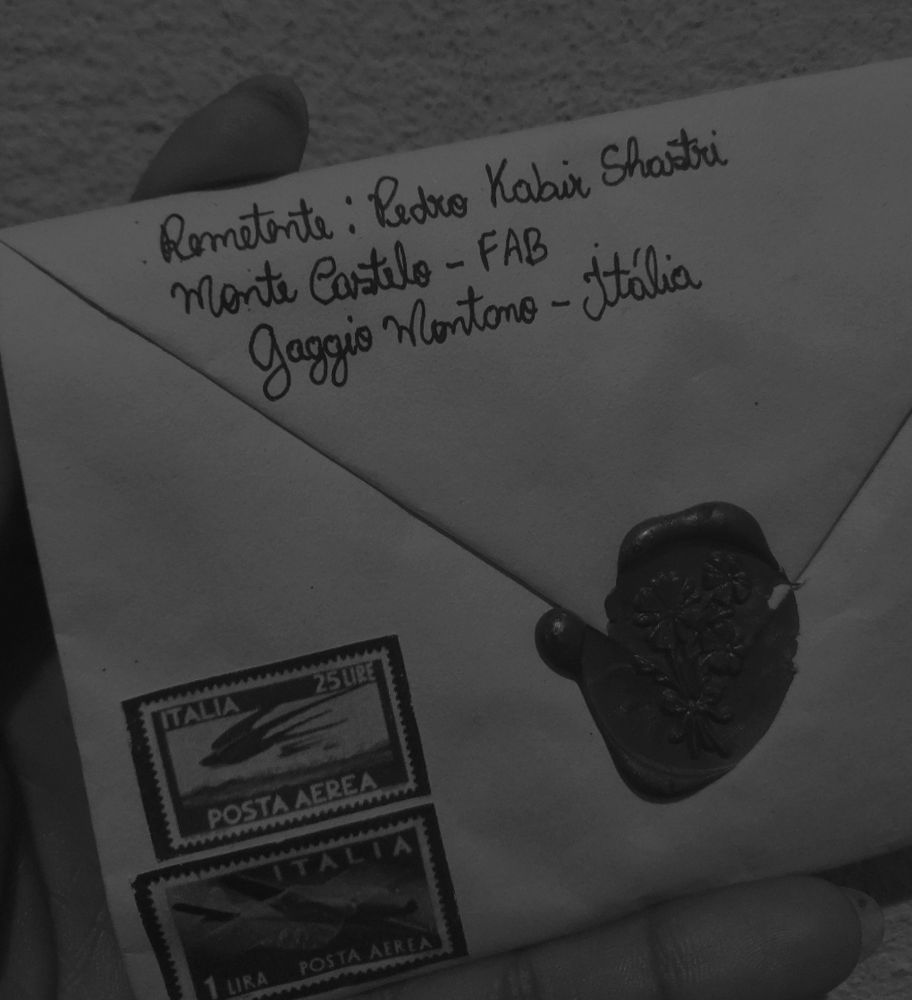 Remetente : Pedro Kabir Shastri
Monte Castelo - FAB
Gaggio Montano - Itália
ITALIA
25 LIRE
POSTA AEREA
ITALIA
1 LIRA
POSTA AEREA